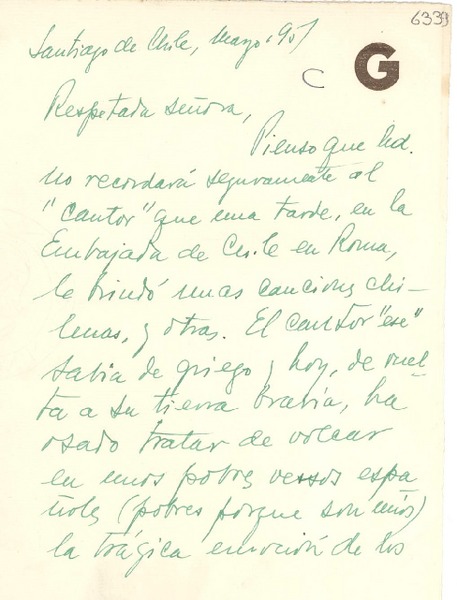 6339
Santiago de Chile, Marzo
C G
Respetada señora,
Pienso que Ud.
no recordará seguramente al
"cantor" que una tarde, en la
Embajada de Chile en Roma,
le brindó unas canciones chi-
lenas, y otras. El cantor "ese"
sabía de griego y hoy, de vuel-
ta a su tierra bravía, ha
osado tratar de volcar
en unos pobres versos espa
ñoles (pobres porque son míos)
la trágica emoción de los